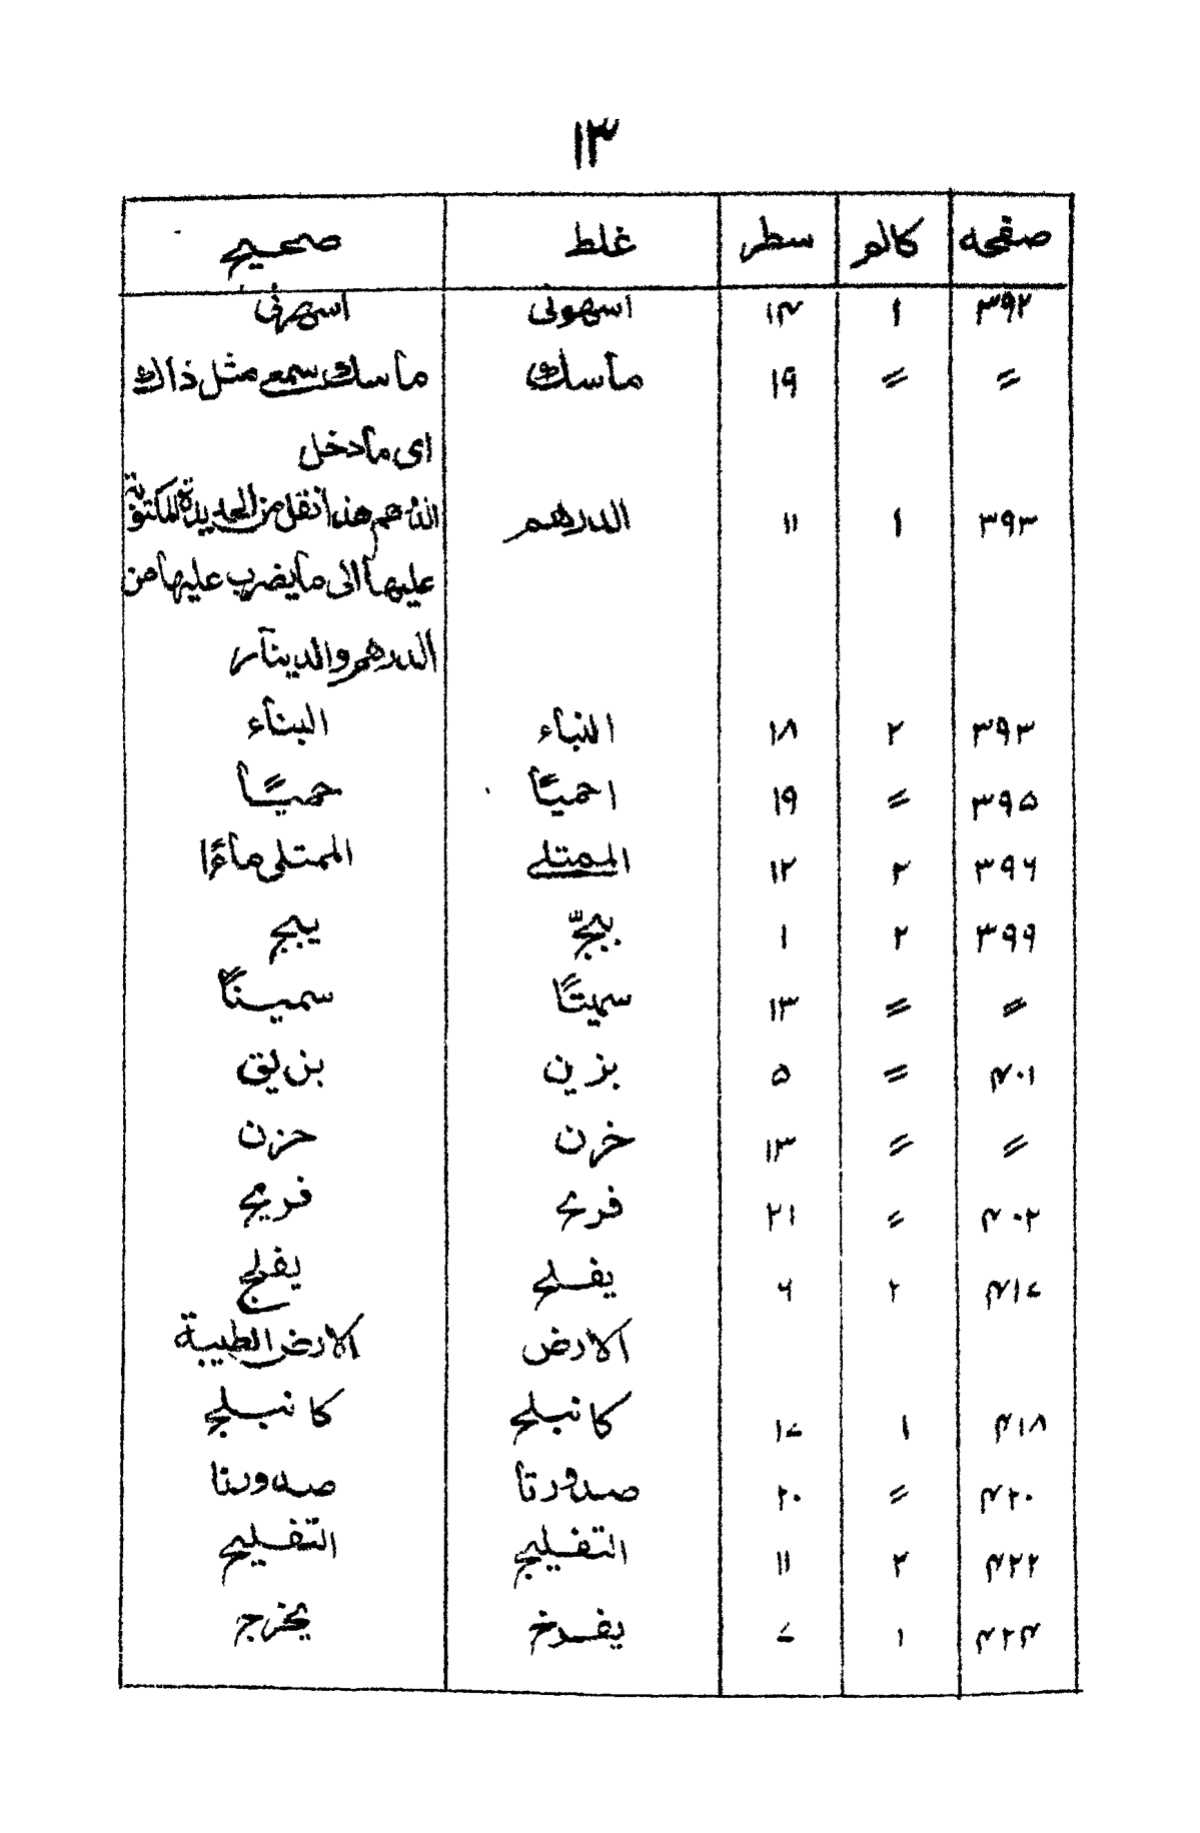 ۱۳
صفحه کالم سطر غلط صحیح
۳۹۲ ۱ ۱۴ اسهونی اسهرنی
〃 〃 ۱۹ ماسك ماسك سمعی مثل ذاك
ای مادخل
۳۹۳ ۱ ۱۱ الدرهم الدرهم هذا نقل من الحدیدة المکتوبة
علیها الی مایضرب علیها من
الدرهم والدینار
۳۹۳ ۲ ۱۸ النباء البناء
۳۹۵ 〃 ۱۹ احمیًا حمیًا
۳۹۶ ۲ ۱۲ الممتلی الممتلی ماءًا
۳۹۹ ۲ ۱ یبج
〃 〃 ۱۳ سمیتًا سمینًا
۴۰۱ 〃 ۵ بزین بزیق
〃 〃 ۱۳ خرن حزن
۴۰۲ 〃 ۲۱ فرح فریج
۴۱۷ ۲ ۶ یفلح یفلج
الارض الارض الطیبة
۴۱۸ ۱ ۱۷ کانبلح کانبلج
۴۲۰ 〃 ۲۰ صدورتا صدورنا
۴۲۲ ۲ ۱۱ التفلیج التفلیح
۴۲۴ ۱ ۷ یفرخ یخرج